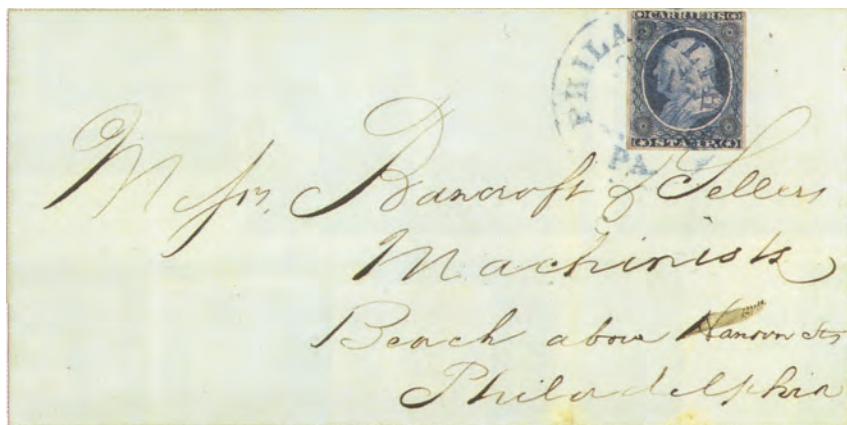 CARRIERS
STAMP
PHILA
PA.
Messrs. Bancroft & Sellers
Machinists
Beach above
Philadelphia